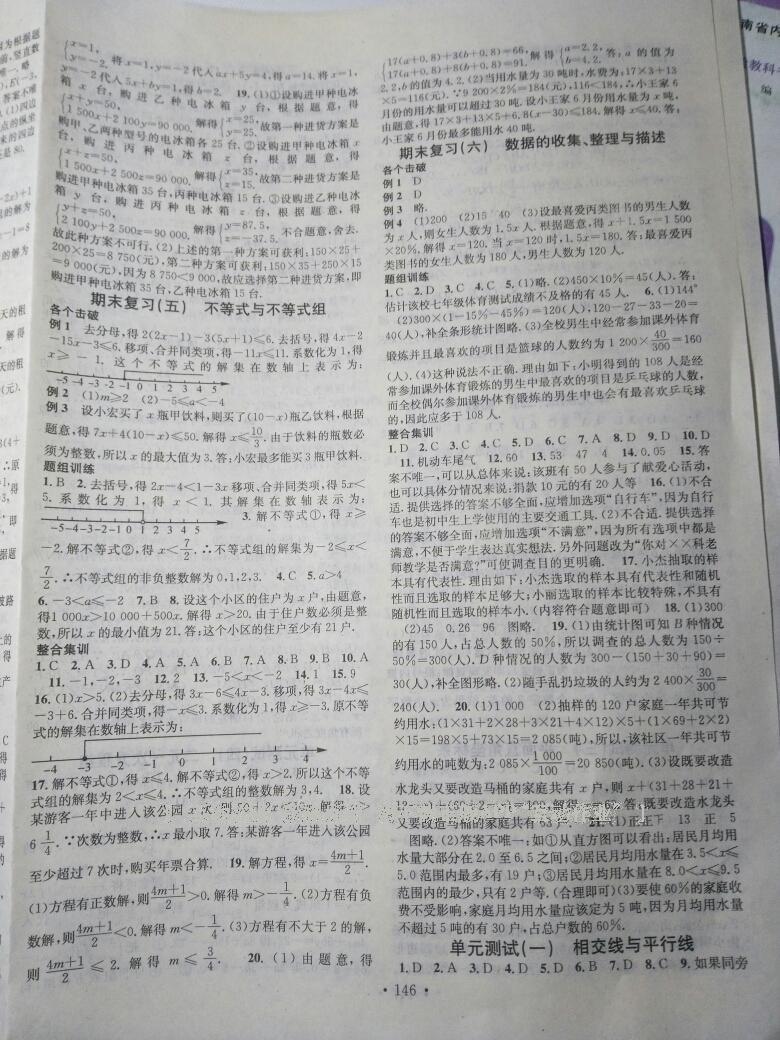 {x=1, y=-2. 将x=1,y=-2代入ax+5y=4,得a=14.将x=1,
y=-2代入5x+by=1,得b=2. 19.(1)①设购进甲种电冰
箱 x 台,购进乙种电冰箱 y 台,根据题意,得
{x+y=50, 1 500x+2 100y=90 000. 解得{x=25, y=25. 故第一种进货方案是
购甲、乙两种型号的电冰箱各25台.②设购进甲种电冰箱 x
台,购进丙种电冰箱 z 台,根据题意,得
{x+z=50, 1 500x+2 500z=90 000. 解得{x=35, z=15. 故第二种进货方案是
购进甲种电冰箱35台,丙种电冰箱15台.③设购进乙种电冰
箱 y 台,购进丙种电冰箱 z 台,根据题意,得
{y+z=50, 2 100y+2 500z=90 000. 解得{y=87.5, z=-37.5. 不合题意,舍去.
故此种方案不可行.(2)上述的第一种方案可获利:150×25+
200×25=8 750(元),第二种方案可获利:150×35+250×15
=9 000(元),因为8 750<9 000,故应选择第二种进货方案,即
购进甲种电冰箱35台,乙种电冰箱15台.
期末复习(五) 不等式与不等式组
各个击破
例1 去分母,得2(2x-1)-3(5x+1)≤6.去括号,得4x-2
-15x-3≤6.移项、合并同类项,得-11x≤11.系数化为1,得
x≥-1.这个不等式的解集在数轴上表示为:
-5 -4 -3 -2 -1 0 1 2 3 4 5
例2 (1)m≥2 (2)-5≤a<-4
例3 设小宏买了x瓶甲饮料,则买了(10-x)瓶乙饮料,根据
题意,得7x+4(10-x)≤50.解得x≤10/3.由于饮料的瓶数必
须为整数,所以x的最大值为3.答:小宏最多能买3瓶甲饮料.
题组训练
1.B 2.去括号,得2x-4<1-3x移项、合并同类项,得5x<
5.系数化为1,得x<1.其解集在数轴上表示为:
-5 -4 -3 -2 -1 0 1 2 3 4 5 3.解不等式①,得x≥
-2.解不等式②,得x<7/2.∴不等式组的解集为-2≤x<
7/2.∴不等式组的非负整数解为0,1,2,3. 4.C 5.a>4
6.-3<a≤-2 7.B 8.设这个小区的住户为x户,由题意,
得1 000x>10 000+500x.解得x>20.由于住户数必须是整
数,所以x的最小值为21.答:这个小区的住户至少有21户.
整合集训
1.C 2.A 3.D 4.A 5.A 6.B 7.A 8.B 9.B 10.A
11.-1,-2,-3 12.2 13.-5<x<-2 14.1 15.9
16.(1)x>5.(2)去分母,得3x-6≤4x-3.移项,得3x-4x≤
-3+6.合并同类项,得-x≤3.系数化为1,得x≥-3.原不等
式的解集在数轴上表示为:
-4 -3 -2 -1 0 1 2 3 4
17.解不等式①,得x≤4.解不等式②,得x>2.所以这个不等
式组的解集为2<x≤4.∴不等式组的整数解为3,4. 18.设
某游客一年中进入该公园x次,则
6 1/4.∵次数为整数,∴x最小取7.答:某游客一年进入该公园
至少超过7次时,购买年票合算. 19.解方程,得x=(4m+1)/2.
(1)方程有正数解,则(4m+1)/2>0.解得m>-1/4.(2)方程有负
数解,则(4m+1)/2<0.解得m<-1/4.(3)方程有不大于2的解,
则(4m+1)/2≤2.解得m≤3/4. 20.(1)由题意,得
{17(a+0.8)+3(b+0.8)=66, 17(a+0.8)+8(b+0.8)=91. 解得{a=2.2, b=4.2. 答:a的值为
2.2,b的值为4.2.(2)当用水量为30吨时,水费为:17×3+13
×5=116(元).∵9 200×2%=184(元),116<184,∴小王家6
月份的用水量可以超过30吨.设小王家6月份用水量为x吨,
由题意,得17×3+13×5+6.8(x-30)≤184.解得x≤40.答:
小王家6月份最多能用水40吨.
期末复习(六) 数据的收集、整理与描述
各个击破
例1 D
例2 D
例3 略.
例4 (1)200 (2)15 40 (3)设最喜爱丙类图书的男生人数
为x人,则女生人数为1.5x人.根据题意,得x+1.5x=1 500
×20%.解得x=120.当x=120时,1.5x=180.答:最喜爱丙
类图书的女生人数为180人,男生人数为120人.
题组训练
1.C 2.D 3.C 4.C 5.(1)略.(2)450×10%=45(人).答:
估计该校七年级体育测试成绩不及格的有45人. 6.(1)144°
(2)300×(1-15%-45%)=120(人),120-27-33-20=
40(人),补全条形统计图略.(3)全校男生中经常参加课外体育
锻炼并且最喜欢的项目是篮球的人数约为1 200×40/300=160
(人).(4)这种说法不正确.理由如下:小明得到的108人是经
常参加课外体育锻炼的男生中最喜欢的项目是乒乓球的人数,
而全校偶尔参加课外体育锻炼的男生中也会有最喜欢乒乓球
的,因此应多于108人.
整合集训
1.D 2.C 3.C 4.C 5.D 6.C 7.A 8.D 9.D 10.D
11.机动车尾气 12.60 13.53 47 4 14.0.05 15.答
案不唯一,可以从总体来说:该班有50人参与了献爱心活动,
也可以具体分情况来说:捐款10元的有20人等 16.(1)不合
适.提供选择的答案不够全面,应增加选项“自行车”,因为自行
车也是初中生上学使用的主要交通工具.(2)不合适.提供选择
的答案不够全面,应增加选项“不满意”,因为所有选项中都是
满意,不便于学生表达真实想法.另外问题改为“你对××科老
师教学是否满意?”可使调查目的更明确. 17.小杰抽取的样
本具有代表性.理由如下:小杰选取的样本具有代表性和随机
性而且选取的样本足够大;小丽选取的样本比较特殊,不具有
随机性而且选取的样本小.(内容符合题意即可) 18.(1)300
(2)45 0.26 96 图略. 19.(1)由统计图可知B种情况
的有150人,占总人数的50%,所以调查的总人数为150÷
50%=300(人).D种情况的人数为300-(150+30+90)=
30(人),补全图形略.(2)随手乱扔垃圾的人约为2 400×30/300=
240(人). 20.(1)1 000 (2)抽样的120户家庭一年共可节
约用水:(1×31+2×28+3×21+4×12)×5+(1×69+2×2)
×15=198×5+73×15=2 085(吨),所以,该社区一年共可节
约用水的吨数为:2 085×1 000/100=20 850(吨).(3)设既要改造
水龙头又要改造马桶的家庭共有x户,则x+(31+28+21+
答:既要改造水龙头
又要改造马桶的家庭共有63户. 21.(1)正正下 13 正 5
图略.(2)答案不唯一:如①从直方图可以看出:居民月均用
水量大部分在2.0至6.5之间;②居民月均用水量在3.5<x≤
5.0范围内最多,有19户;③居民月均用水量在8.0<x≤9.5
范围内的最少,只有2户等.(合理即可)(3)要使60%的家庭收
费不受影响,家庭月均用水量应该定为5吨,因为月均用水量
不超过5吨的有30户,占总户数的60%.
单元测试(一) 相交线与平行线
1.D 2.A 3.D 4.D 5.D 6.B 7.D 8.C 9.如果同旁
·146·
南省内
教科
编